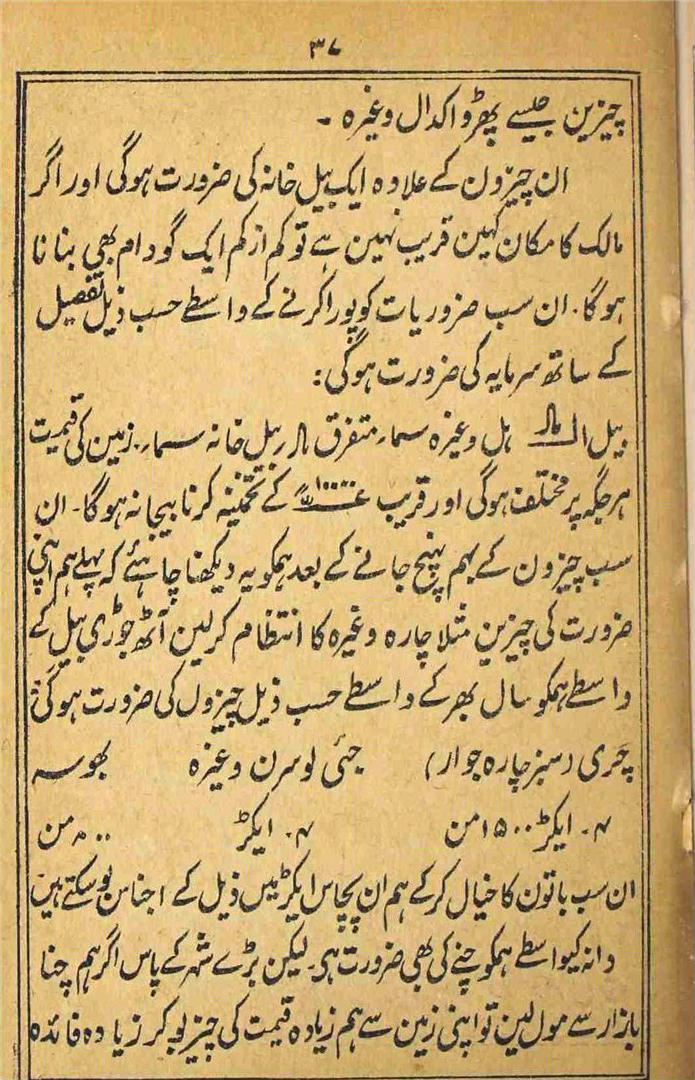 ۳۷
چیزین جیسے پھڑوا کدال وغیرہ ۔
ان چیزون کے علاوہ ایک بیل خانہ کی ضرورت ہوگی اور اگر
مالک کا مکان کہین قریب نہین ہے تو کم از کم ایک گودام بھی بنانا
ہوگا۔ ان سب ضروریات کو پورا کرنے کے واسطے حسب ذیل تفصیل
کے ساتھ سرمایہ کی ضرورت ہوگی:
بیل ہل وغیرہ متفرق بیل خانہ زمین کی قیمت
ہر جگہ پر مختلف ہوگی اور قریب ۱۰۰۰۰ کے تخمینہ کرنا بیجا نہ ہوگا۔ ان
سب چیزون کے بہم پہنچ جانے کے بعد ہمکو یہ دیکھنا چاہئے کہ پہلے ہم اپنی
ضرورت کی چیزین مثلا چارہ وغیرہ کا انتظام کرلین آٹھ جوڑی بیل کے
واسطے ہمکو سال بھر کے واسطے حسب ذیل چیزوں کی ضرورت ہوگی
چری (سبز چارہ جوار) جئی لوسرن وغیرہ بھوسہ
ایکڑ ۱۵۰۰ من ایکڑ من
ان سب باتون کا خیال کرکے ہم ان پچاس ایکڑ میں ذیل کے اجناس بو سکتے ہین
دانہ کیواسطے ہمکو چنے کی بھی ضرورت ہی۔ لیکن بڑے شہر کے پاس اگر ہم چنا
بازار سے مول لین تو اپنی زمین سے ہم زیادہ قیمت کی چیز بو کر زیادہ فائدہ